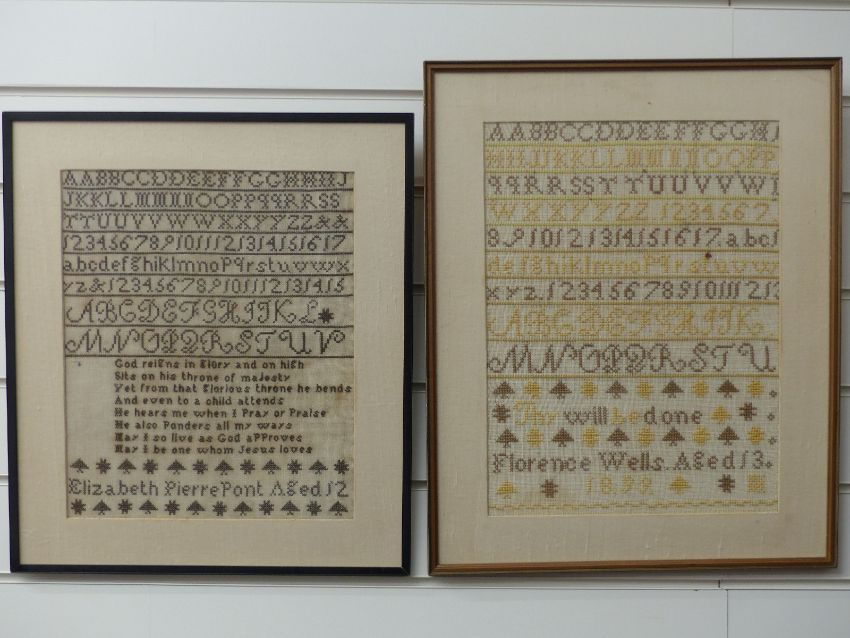 AABBCCDDEEFFGGHHIJ
JKKLLMMNNOOPPqqRRSS
TTUUVVWWXXYYZZ&&
1234567891011121314151617
abcdefghiklmnopqrstuvwx
yz&123456789101112131415
ABCDEFGHIJKL
MNOPQRSTUV
God reigns in Glory and on high
Sits on his throne of majesty
Yet from that Glorious throne he bends
And even to a child attends
He hears me when I Pray or Praise
He also Ponders all my ways
May I so live as God aPProves
May I be one whom Jesus loves
Elizabeth PierrePont Aged 12
AABBCCDDEEFFGGHI
HIJJKKLLMMNNOOPP
qqRRSSTTUUVVWI
WXXYYZZ 1234567
8.910121314151617.abc
defghiklmnopqrstuvw
xyz.123456789101112
ABCDEFGHIJK
MNOPQRSTU
Thy will be done
Florence Wells. Aged 13.